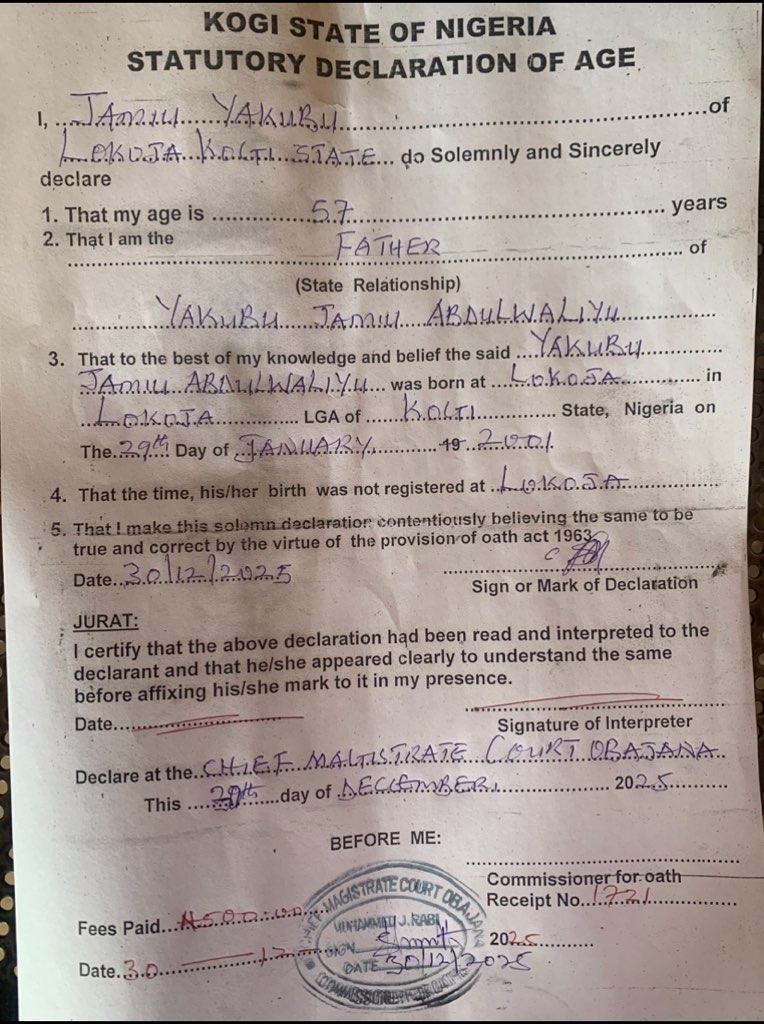 KOGI STATE OF NIGERIA
STATUTORY DECLARATION OF AGE
I, ... JAMIU YAKUBU ... of
LOKOJA KOGI STATE ... do Solemnly and Sincerely
declare
1. That my age is ... 57 ... years
2. That I am the FATHER ... of
(State Relationship)
YAKUBU JAMIU ABDULWALIYU
3. That to the best of my knowledge and belief the said ... YAKUBU
JAMIU ABDULWALIYU ... was born at ... LOKOJA ... in
LOKOJA ... LGA of ... KOGI ... State, Nigeria on
The 29th Day of JANUARY ... 19 2001
4. That the time, his/her birth was not registered at ... LOKOJA
5. That I make this solemn declaration contentiously believing the same to be
true and correct by the virtue of the provision of oath act 1963
Date 30/12/2025
Sign or Mark of Declaration
JURAT:
I certify that the above declaration had been read and interpreted to the
declarant and that he/she appeared clearly to understand the same
before affixing his/she mark to it in my presence.
Date
Signature of Interpreter
Declare at the CHIEF MAGISTRATE COURT OBAJANA
This ... day of DECEMBER ... 2025
BEFORE ME:
Commissioner for oath
Receipt No. 1721
Fees Paid ₦500:00
2025
Date 30 12
MAGISTRATE COURT OBAJANA
MUHAMMED J. RABI
SIGN
DATE 30/12/2025